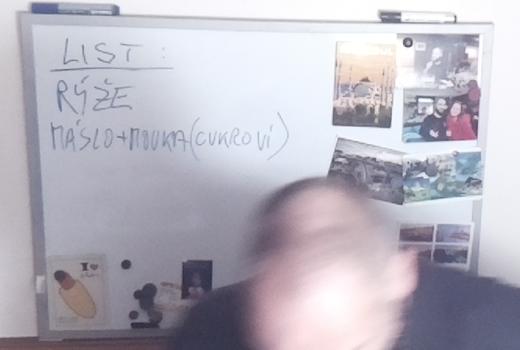 LIST:
RÝŽE
MÁSLO+MOUKA(CUKROVÍ)
I